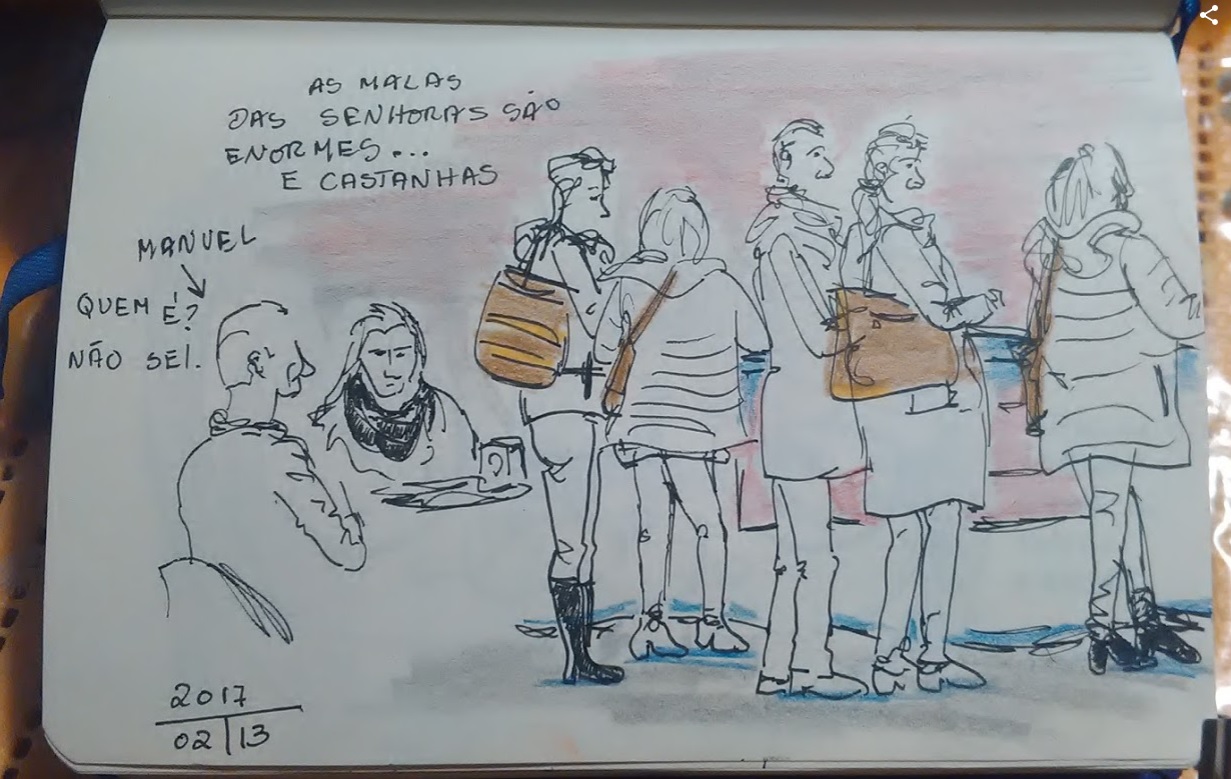 AS MALAS
DAS SENHORAS SÃO
ENORMES...
E CASTANHAS
MANUEL
QUEM É?
NÃO SEI.
2017
02 | 13